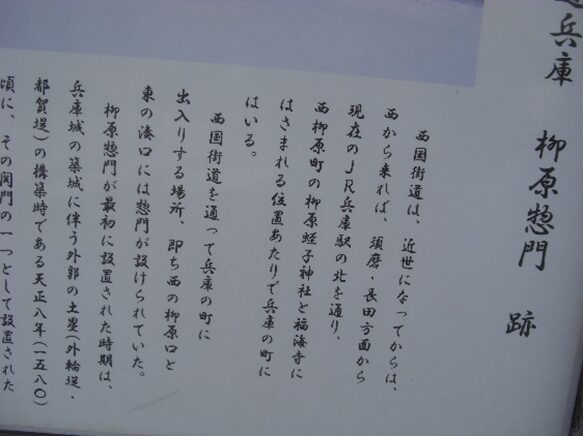 兵庫 柳原惣門 跡
西国街道は、近世になってからは、
西から来れば、須磨・長田方面から
現在のJR兵庫駅の北を通り、
西柳原町の柳原蛭子神社と福海寺に
はさまれる位置あたりで兵庫の町に
はいる。
西国街道を通って兵庫の町に
出入りする場所、即ち西の柳原口と
東の湊口には惣門が設けられていた。
柳原惣門が最初に設置された時期は、
兵庫城の築城に伴う外郭の土塁(外輪堤・
都賀堤)の構築時である天正八年(一五八〇)
頃に、その関門の一つとして設置された